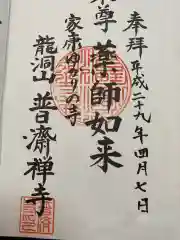 奉拝
平成二十九年四月七日
尊
薬師如来
家康ゆかりの寺
龍洞山
普濟禅寺